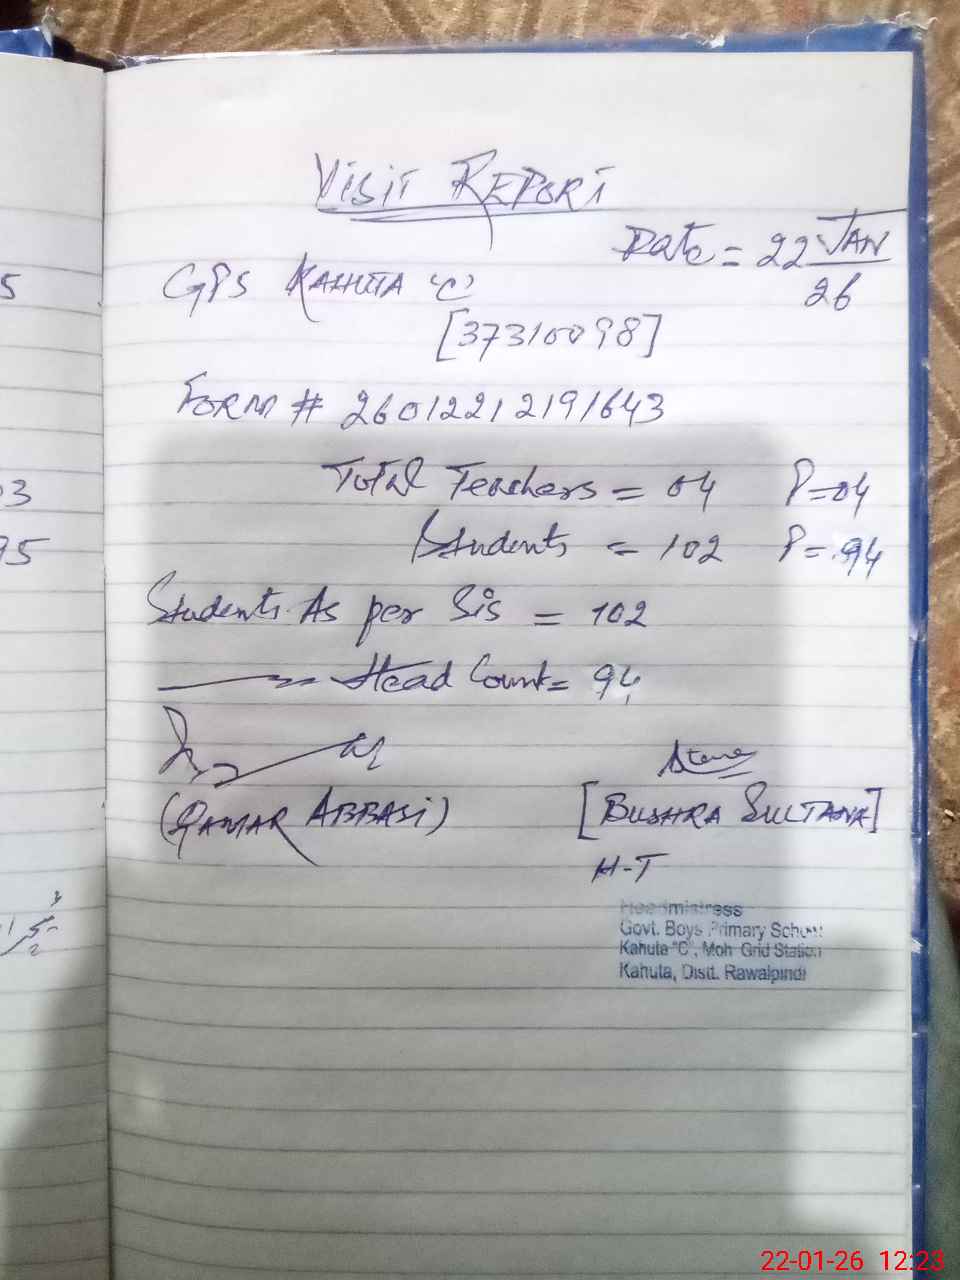 VISIT REPORT
Date = 22 JAN
26
GPS KAHUTA 'C'
[37310098]
FORM # 26012212191643
Total Teachers = 04 P=04
Students = 102 P=94
Students As per Sis = 102
Head Count = 94
(QAMAR ABBASI)
[BUSHRA SULTANA]
H-T
Headmistress
Govt. Boys Primary School
Kahuta "C", Moh Grid Station
Kahuta, Distt. Rawalpindi
5
03
95
22-01-26 12:23